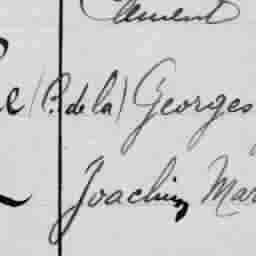 Clément
e (P. de la) Georges
Joachim Mar